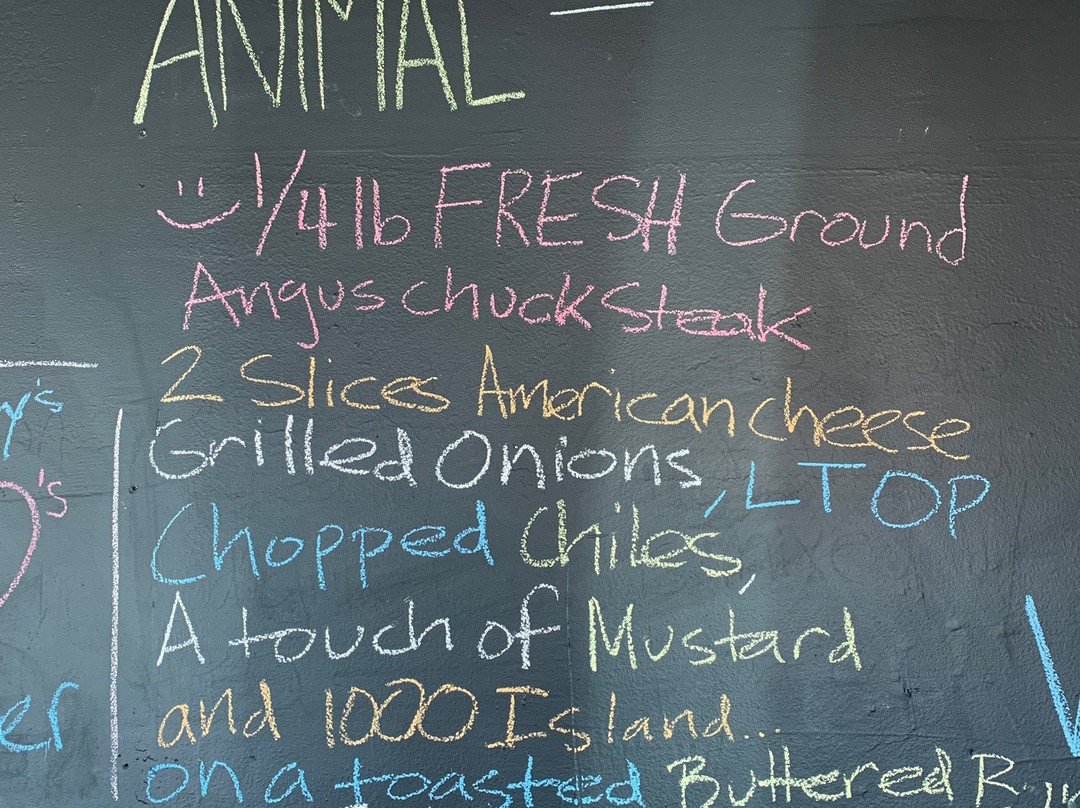 ANIMAL
1/4 lb FRESH Ground
Angus chuck Steak
2 Slices American cheese
Grilled Onions, LTOP
Chopped Chiles,
A touch of Mustard
and 1000 Island...
on a toasted Buttered
y's
's
er